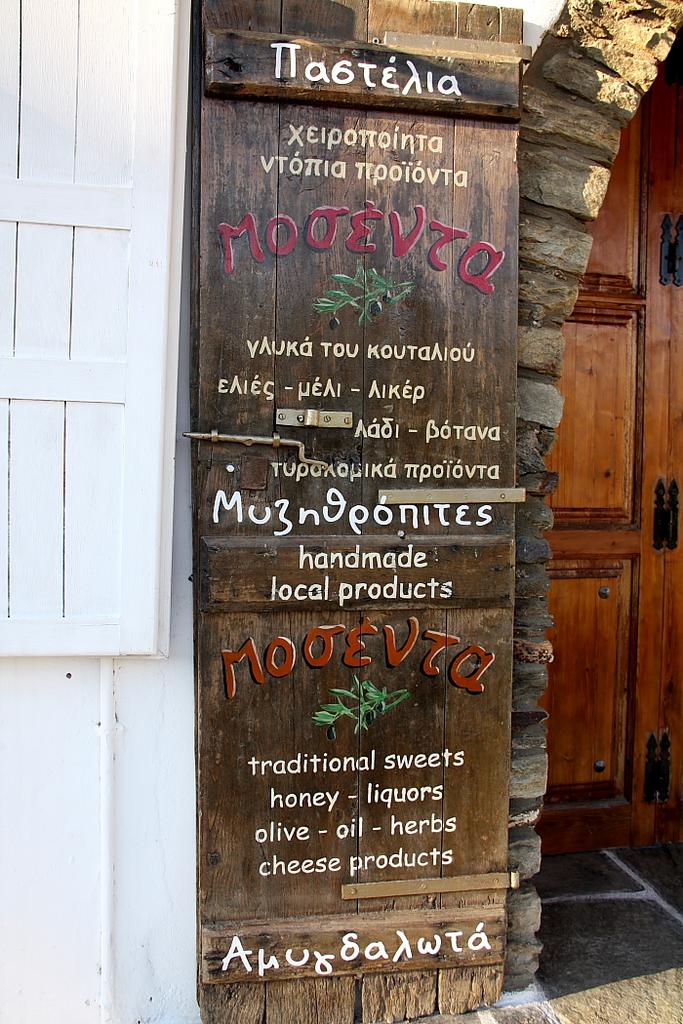 Παστέλια
χειροποίητα
ντόπια προϊόντα
Μοσέντα
γλυκά του κουταλιού
ελιές - μέλι - λικέρ
λάδι - βότανα
τυροκομικά προϊόντα
Μυζηθρόπιτες
handmade
local products
Μοσέντα
traditional sweets
honey - liquors
olive - oil - herbs
cheese products
Αμυγδαλωτά